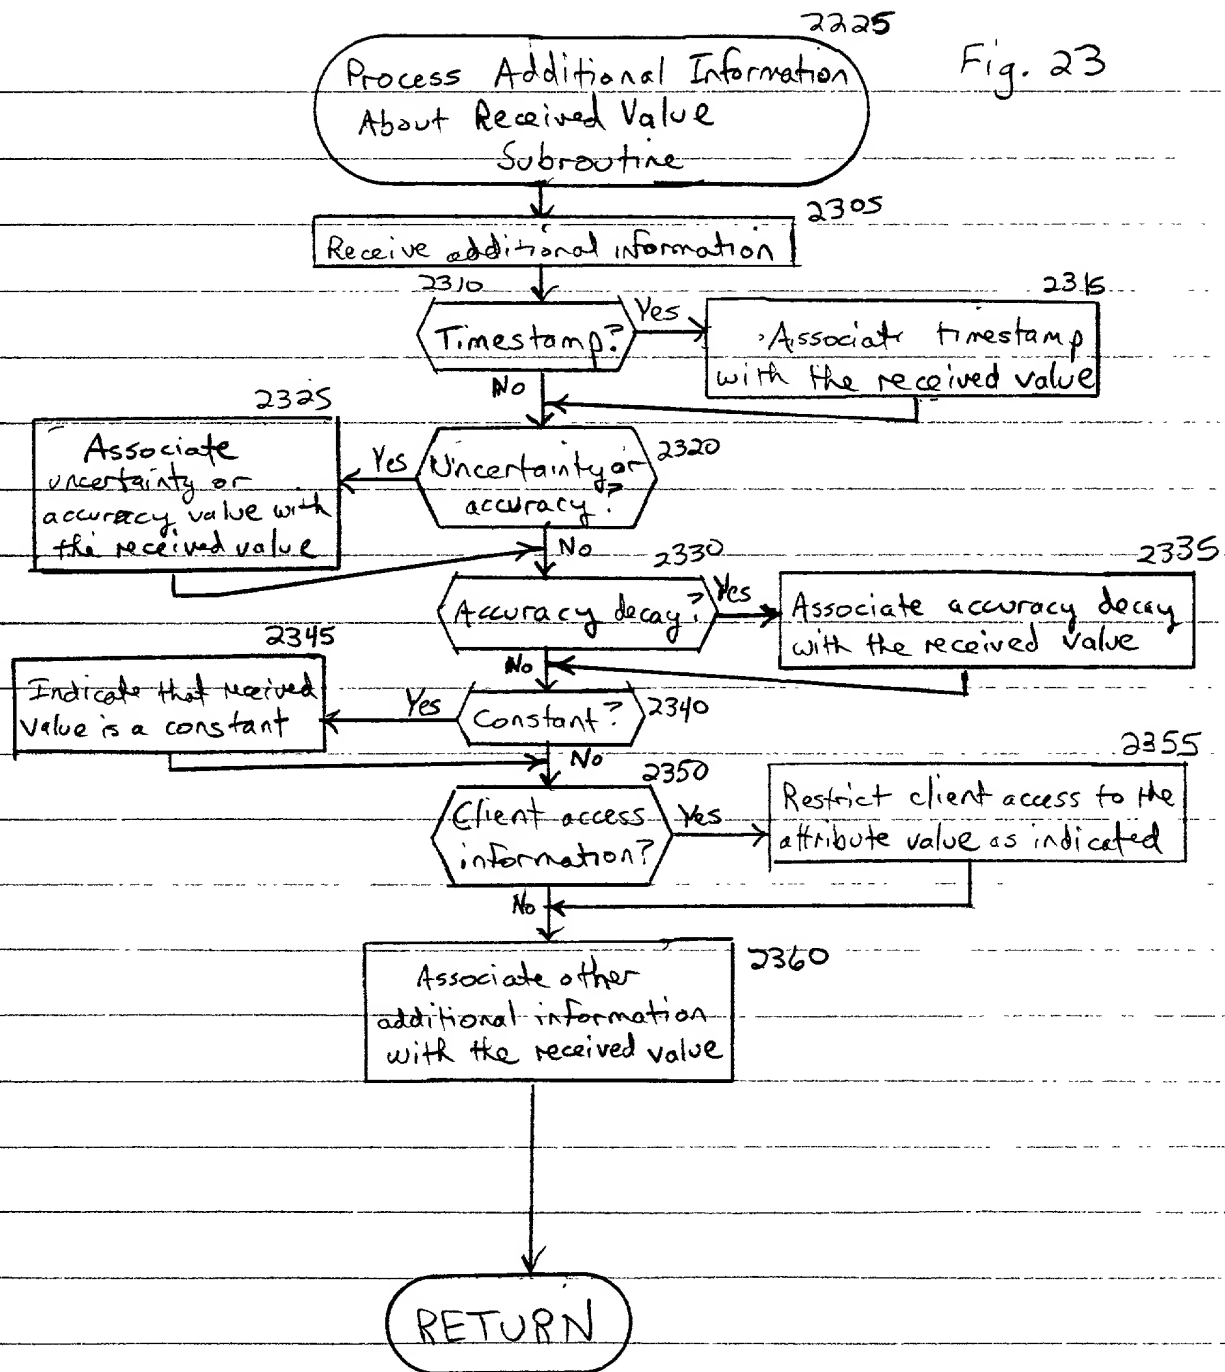 2225
Fig. 23
Process Additional Information
About Received Value
Subroutine
2305
Receive additional information
2310
Timestamp?
Yes
No
2315
Associate timestamp
with the received value
2325
Associate
uncertainty or
accuracy value with
the received value
Yes
Uncertainty or
accuracy?
2320
No
2330
Accuracy decay?
Yes
2335
Associate accuracy decay
with the received value
No
2345
Indicate that received
value is a constant
Yes
Constant?
2340
No
2350
Client access
information?
Yes
2355
Restrict client access to the
attribute value as indicated
No
2360
Associate other
additional information
with the received value
RETURN